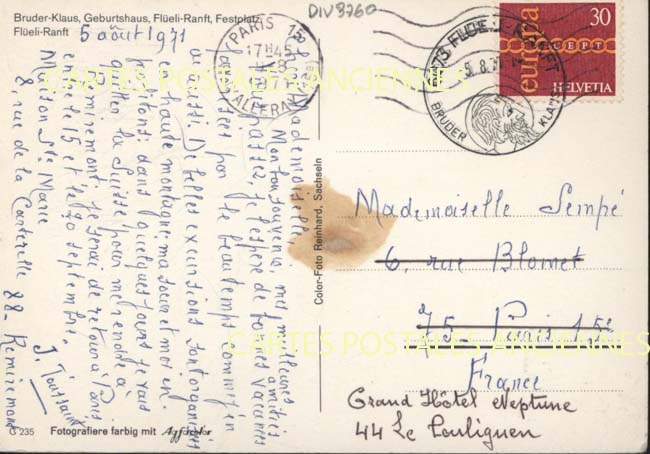 DIV8760
Bruder-Klaus, Geburtshaus, Flüeli-Ranft, Festplatz,
Flüeli-Ranft
5 août 1971
Mademoiselle,
Mon bon souvenir, mes meilleures
amitiés
Vous passez, je l'espère de bonnes vacances
favorisées par le beau temps comme j'en
ai aussi. De belles excursions sont organisées
en haute montagne; ma sœur et moi en
profitons; dans quelques jours je vais
quitter la Suisse pour me rendre à
Remiremont; je serai de retour à Paris
entre le 15 et le 20 septembre.
J. Toussaint
Maison Ste Marie
8, rue de la Carterelle 88- Remiremont
G 235 Fotografiere farbig mit Agfacolor
Color-Foto Reinhard, Sachseln
PARIS 15
17H45
ALLERAY
FLÜELI-RANFT
5.8.71
BRUDER KLAUS
europa
30
CEPT
HELVETIA
Mademoiselle Sempé
6, rue Blomet
75- Paris 15e
France
Grand Hôtel Neptune
44 Le Pouliguen
CARTES POSTALES ANCIENNES
CARTES POSTALES ANCIENNES